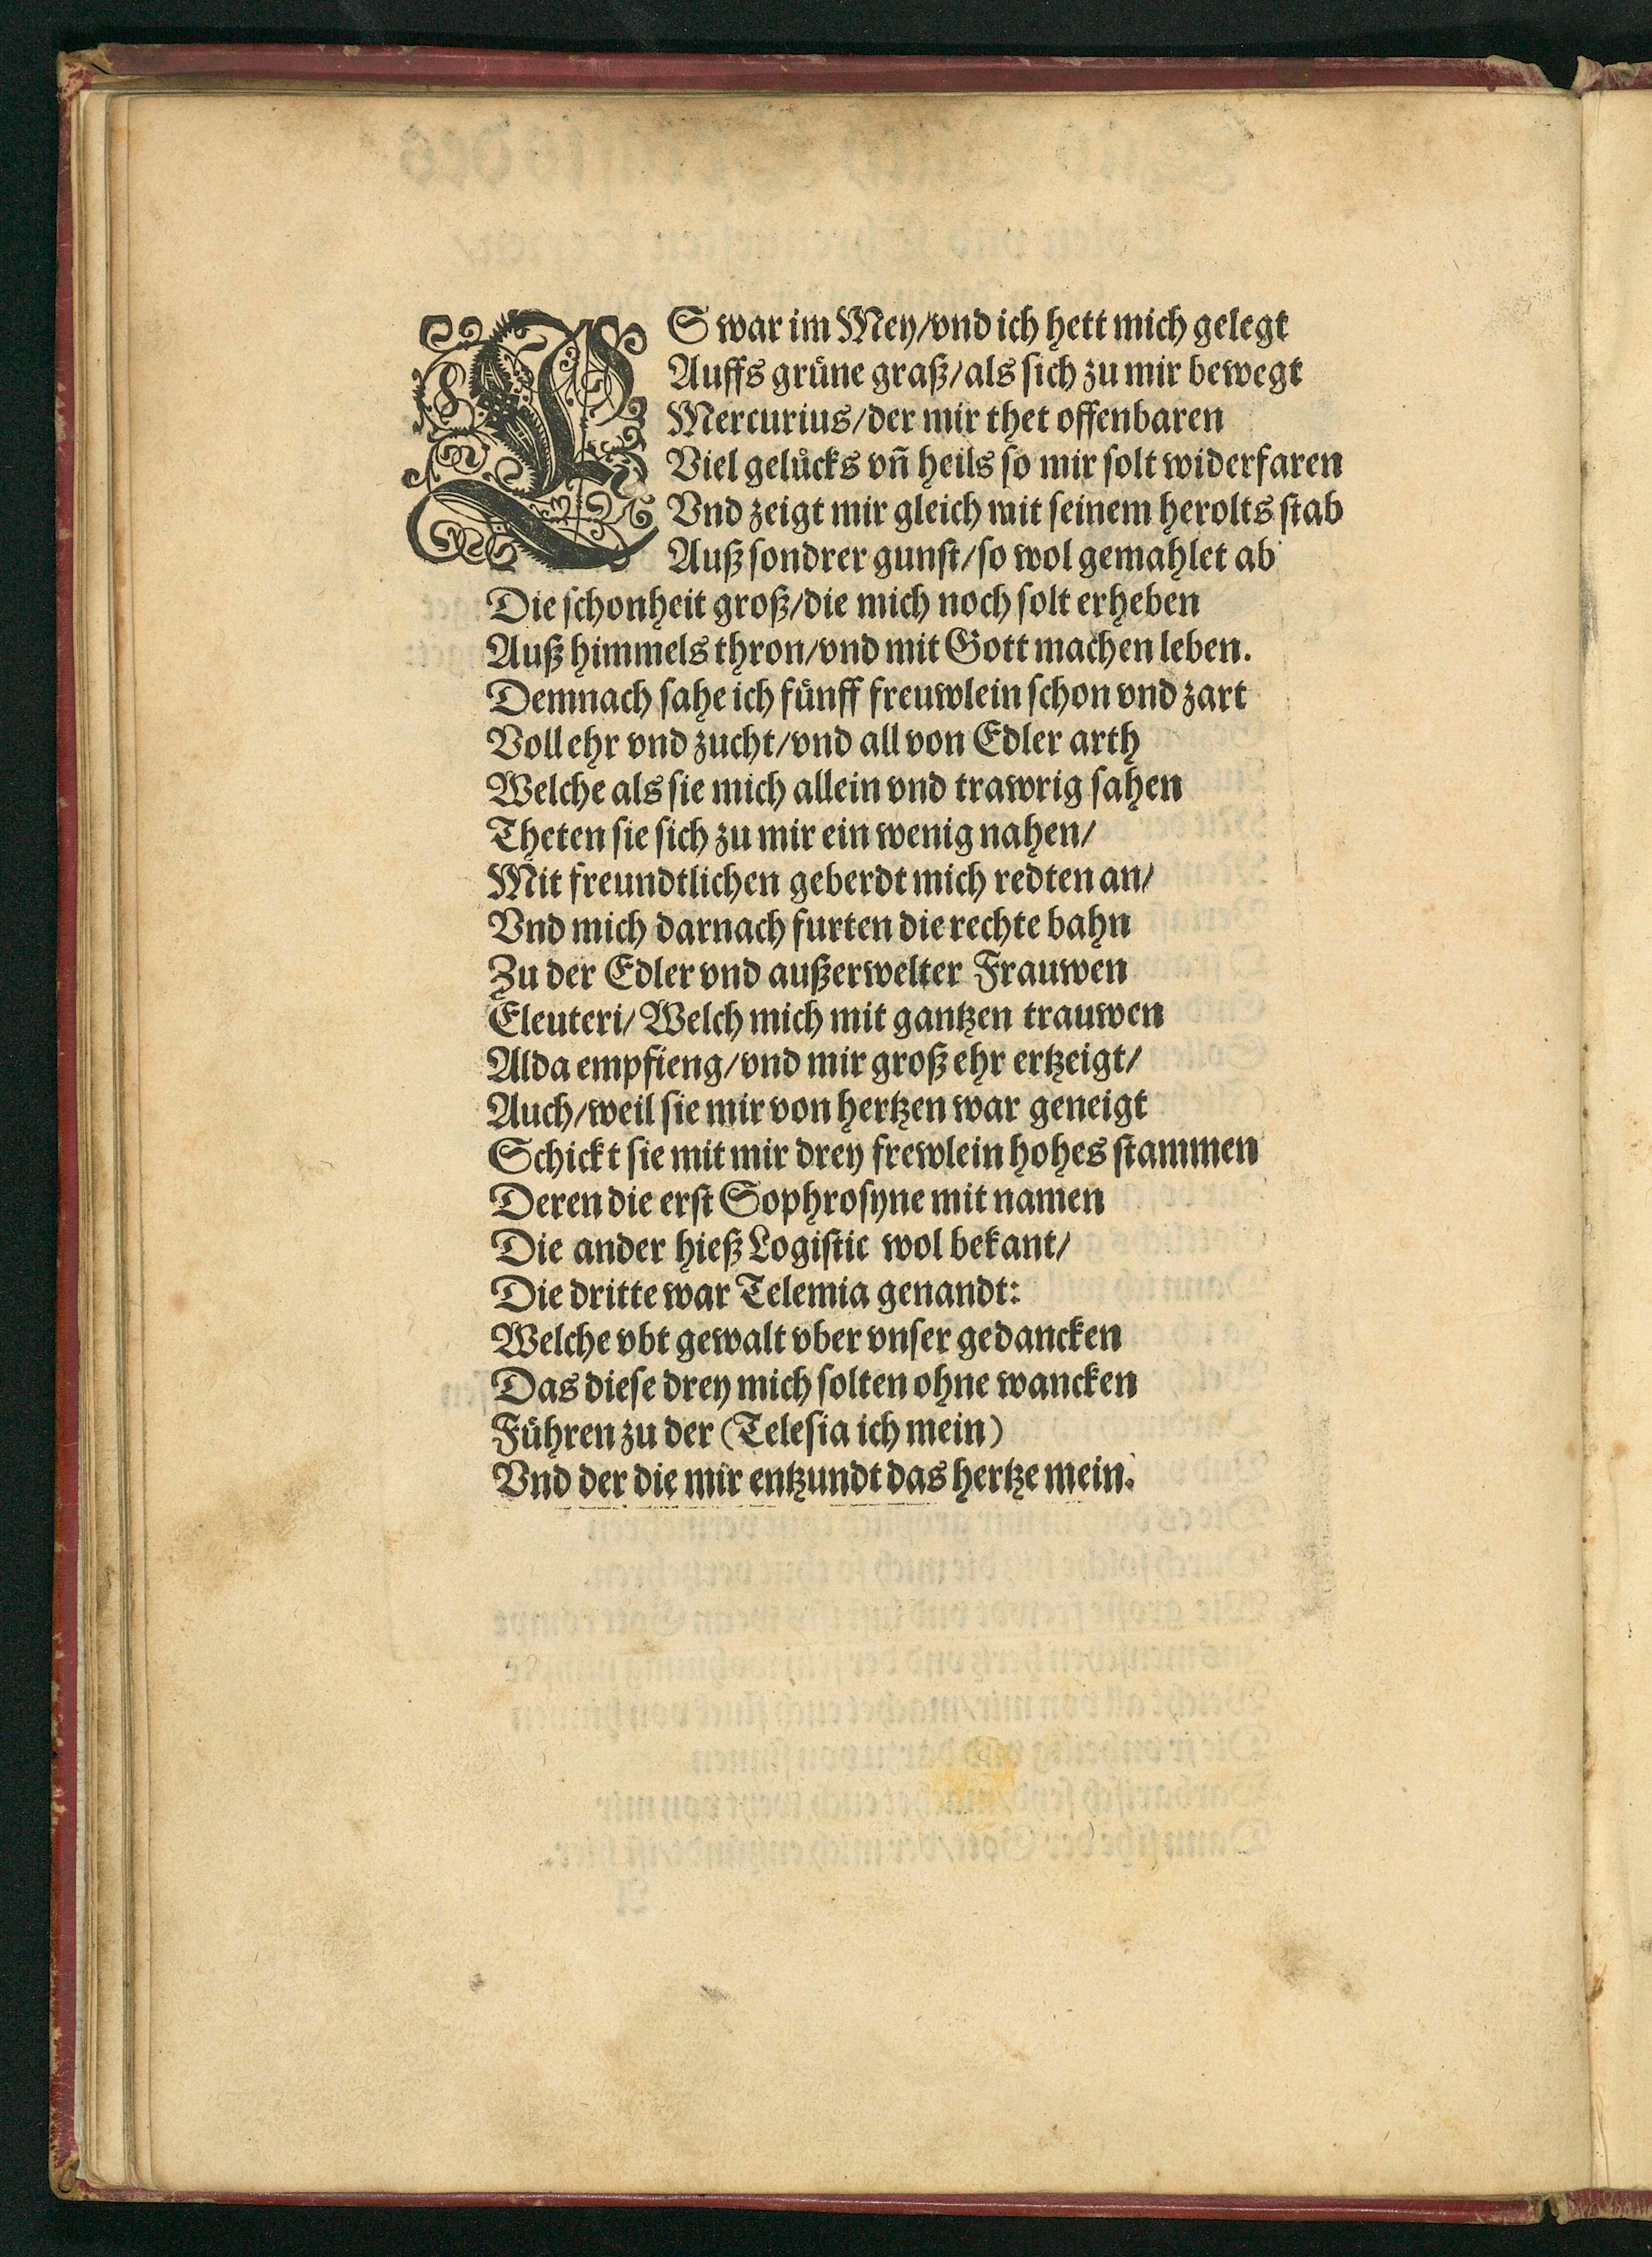 ES war im Mey/vnd ich hett mich gelegt
Auffs gruͤne graß/als sich zu mir bewegt
Mercurius/der mir thet offenbaren
Viel geluͤcks vñ heils so mir solt widerfaren
Vnd zeigt mir gleich mit seinem herolts stab
Auß sondrer gunst/so wol gemahlet ab
Die schonheit groß/die mich noch solt erheben
Auß himmels thron/vnd mit Gott machen leben.
Demnach sahe ich fuͤnff freuwlein schon vnd zart
Voll ehr vnd zucht/vnd all von Edler arth
Welche als sie mich allein vnd trawrig sahen
Theten sie sich zu mir ein wenig nahen/
Mit freundtlichen geberdt mich redten an/
Vnd mich darnach furten die rechte bahn
Zu der Edler vnd außerwelter Frauwen
Eleuteri/Welch mich mit gantzen trauwen
Alda empfieng/vnd mir groß ehr ertzeigt/
Auch/weil sie mir von hertzen war geneigt
Schickt sie mit mir drey frewlein hohes stammen
Deren die erst Sophrosyne mit namen
Die ander hieß Logistic wol bekant/
Die dritte war Telemia genandt:
Welche vbt gewalt vber vnser gedancken
Das diese drey mich solten ohne wancken
Fuͤhren zu der (Telesia ich mein)
Vnd der die mir entzundt das hertze mein.